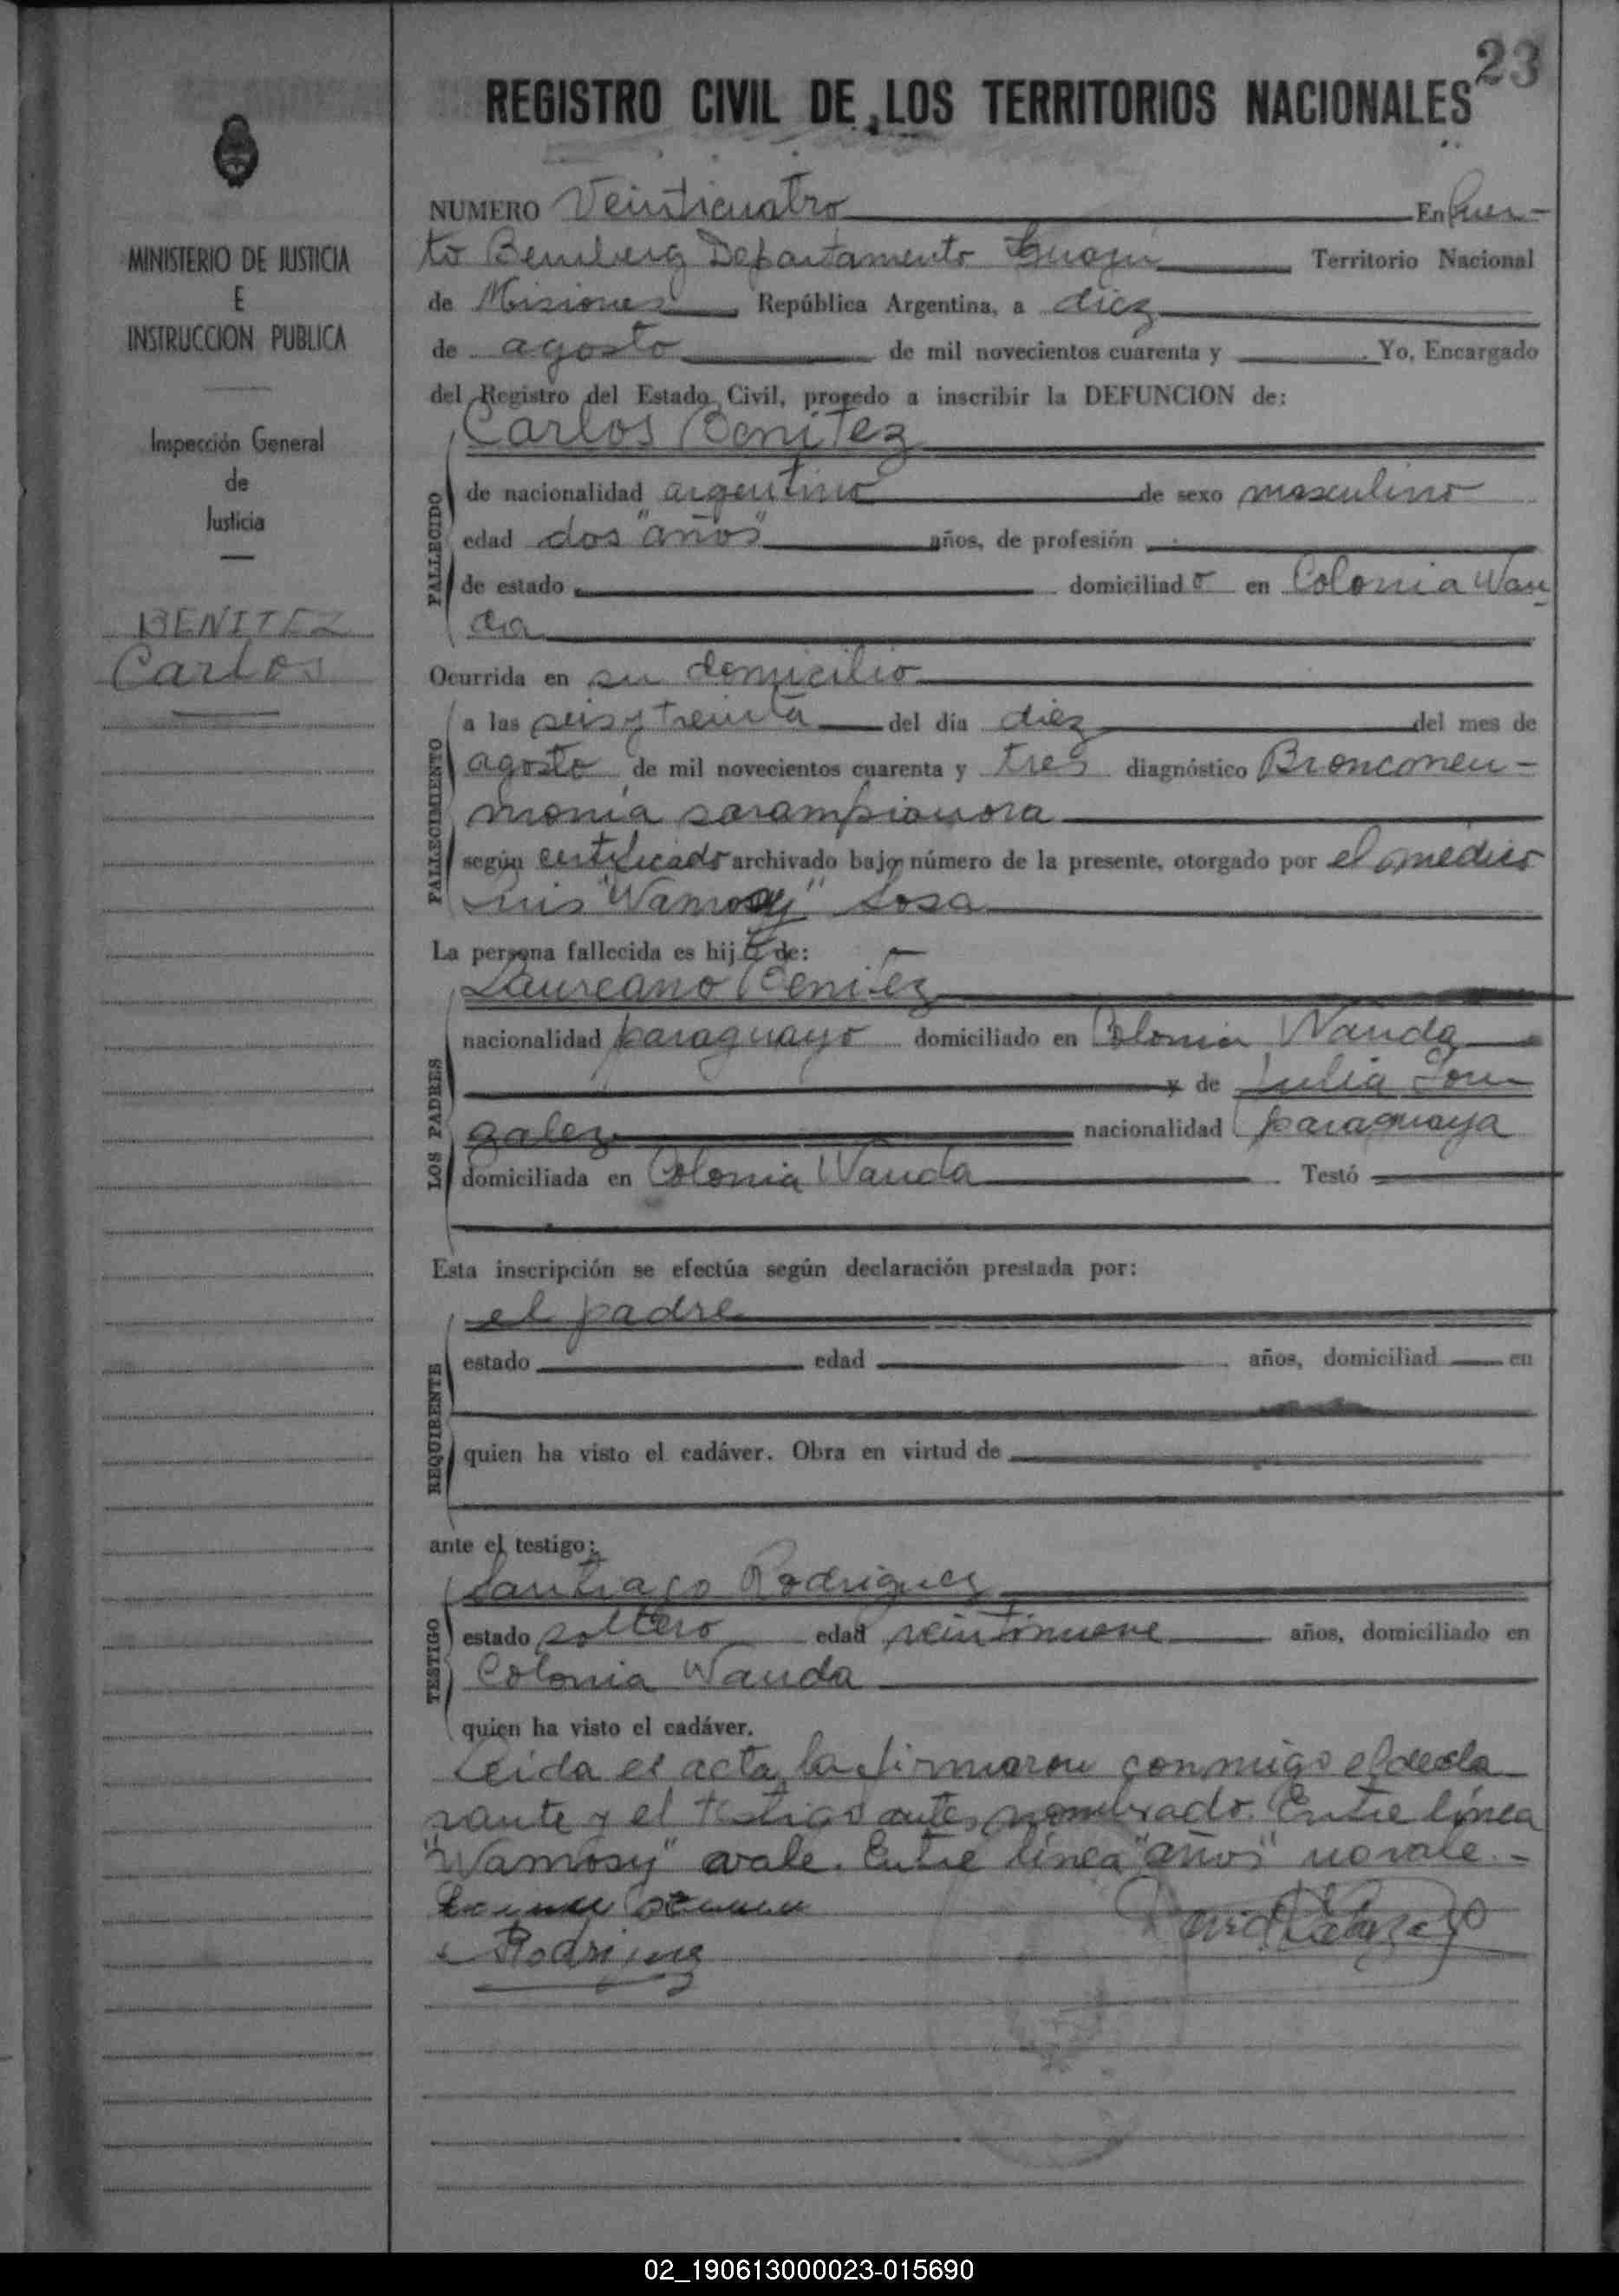 23
REGISTRO CIVIL DE LOS TERRITORIOS NACIONALES
MINISTERIO DE JUSTICIA
E
INSTRUCCION PUBLICA
Inspección General
de
Justicia
BENITEZ
Carlos
NUMERO Veinticuatro En Puer-
to Bemberg Departamento Iguazú Territorio Nacional
de Misiones República Argentina, a diez
de agosto de mil novecientos cuarenta y Yo, Encargado
del Registro del Estado Civil, procedo a inscribir la DEFUNCION de:
Carlos Benitez
FALLECIDO
de nacionalidad argentino de sexo masculino
edad dos "años" años, de profesión
de estado domiciliado en Colonia Wan
da
Ocurrida en su domicilio
FALLECIMIENTO
a las seis y treinta del día diez del mes de
agosto de mil novecientos cuarenta y tres diagnóstico Bronconeu-
monia sarampionosa
según certificado archivado bajo número de la presente, otorgado por el médico
Luis "Wamosy" Sosa
La persona fallecida es hijo de:
Laureano Benitez
LOS PADRES
nacionalidad paraguayo domiciliado en Colonia Wanda
y de Julia Gon
zalez nacionalidad paraguaya
domiciliada en Colonia Wanda Testó
Esta inscripción se efectúa según declaración prestada por:
el padre
REQUIRENTE
estado edad años, domiciliad en
quien ha visto el cadáver. Obra en virtud de
ante el testigo:
Santiago Rodriguez
TESTIGO
estado soltero edad veintinueve años, domiciliado en
Colonia Wanda
quien ha visto el cadáver.
Leida el acta, la firmaron conmigo el decla
rante y el testigo antes nombrado. Entre línea
"Wamosy" vale. Entre línea "años" no vale.-
02_190613000023-015690